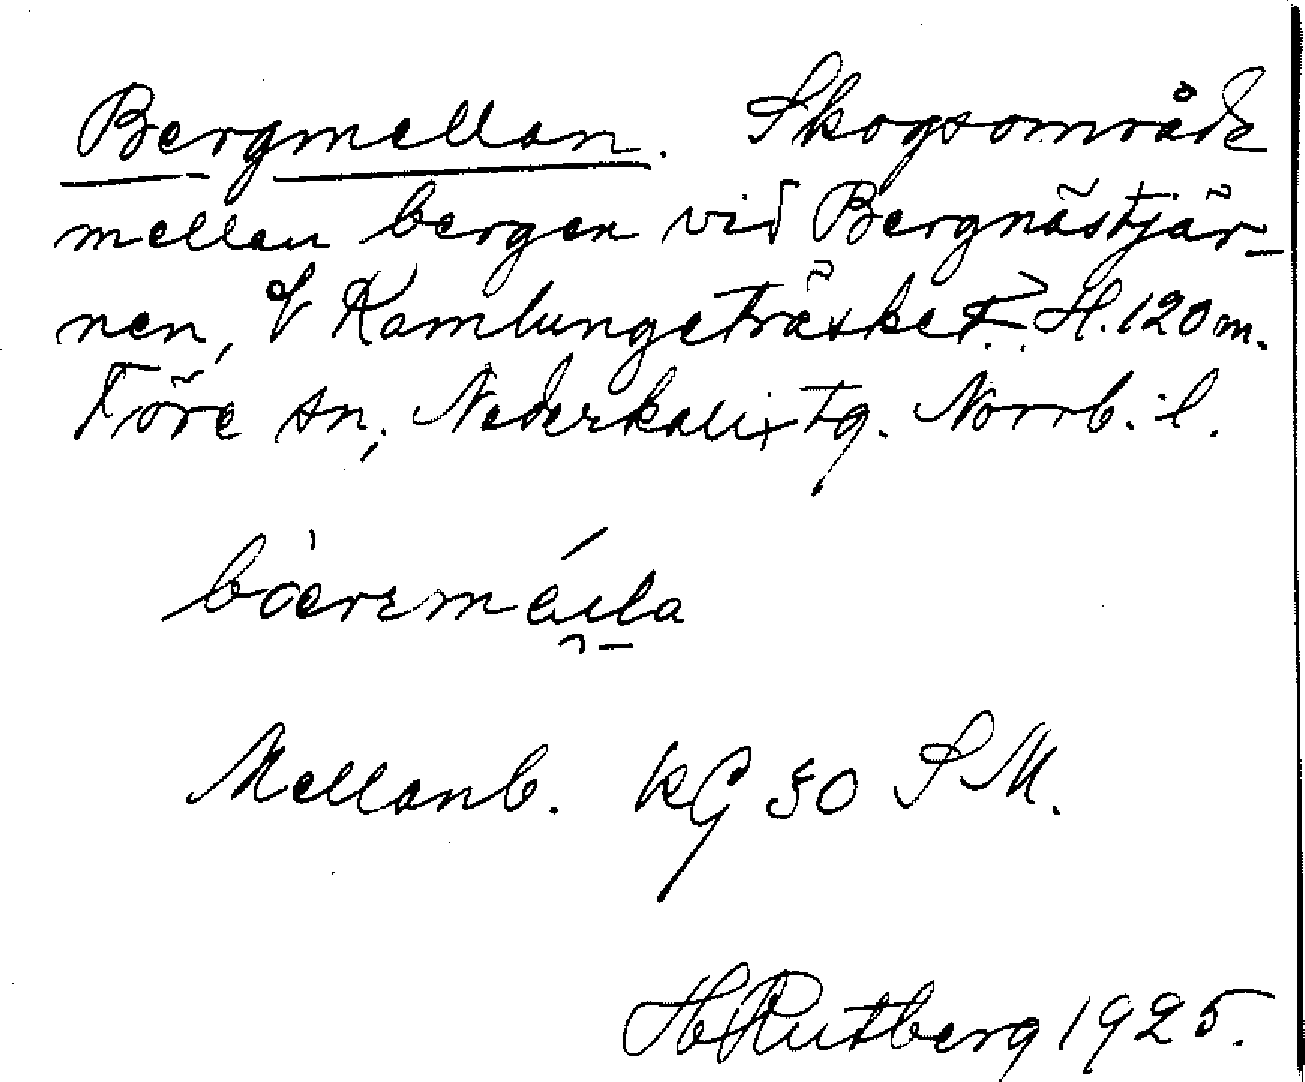 Bergmellan. Skogsområde
mellan bergen vid Bergnästjär-
nen, V Kamlungeträsket. H. 120 m.
Töre sn, Nederkalix tg. Norrb. l.
Mellanb. KG 30 S M.
H Rutberg 1925.